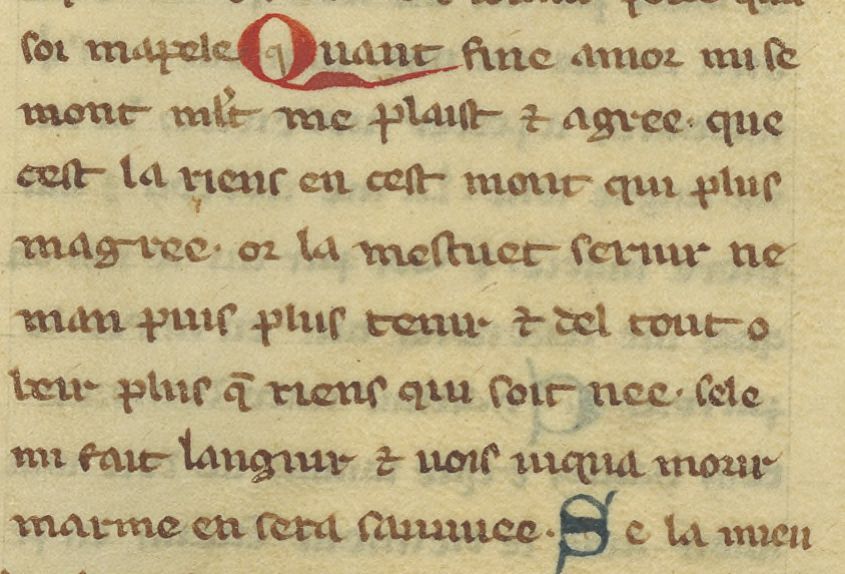 soi mapele Quant fine amor mi se
mont ml't me plaist ⁊ agree. que
cest la riens en cest mont qui plus
magree. or la mestuet seruir ne
man puis plus tenir ⁊ del tout o
beir plus q̄ riens qui soit nee. sele
mi fait languir ⁊ uois iuqua morir
marme en sera sauuuee. Se la mieu